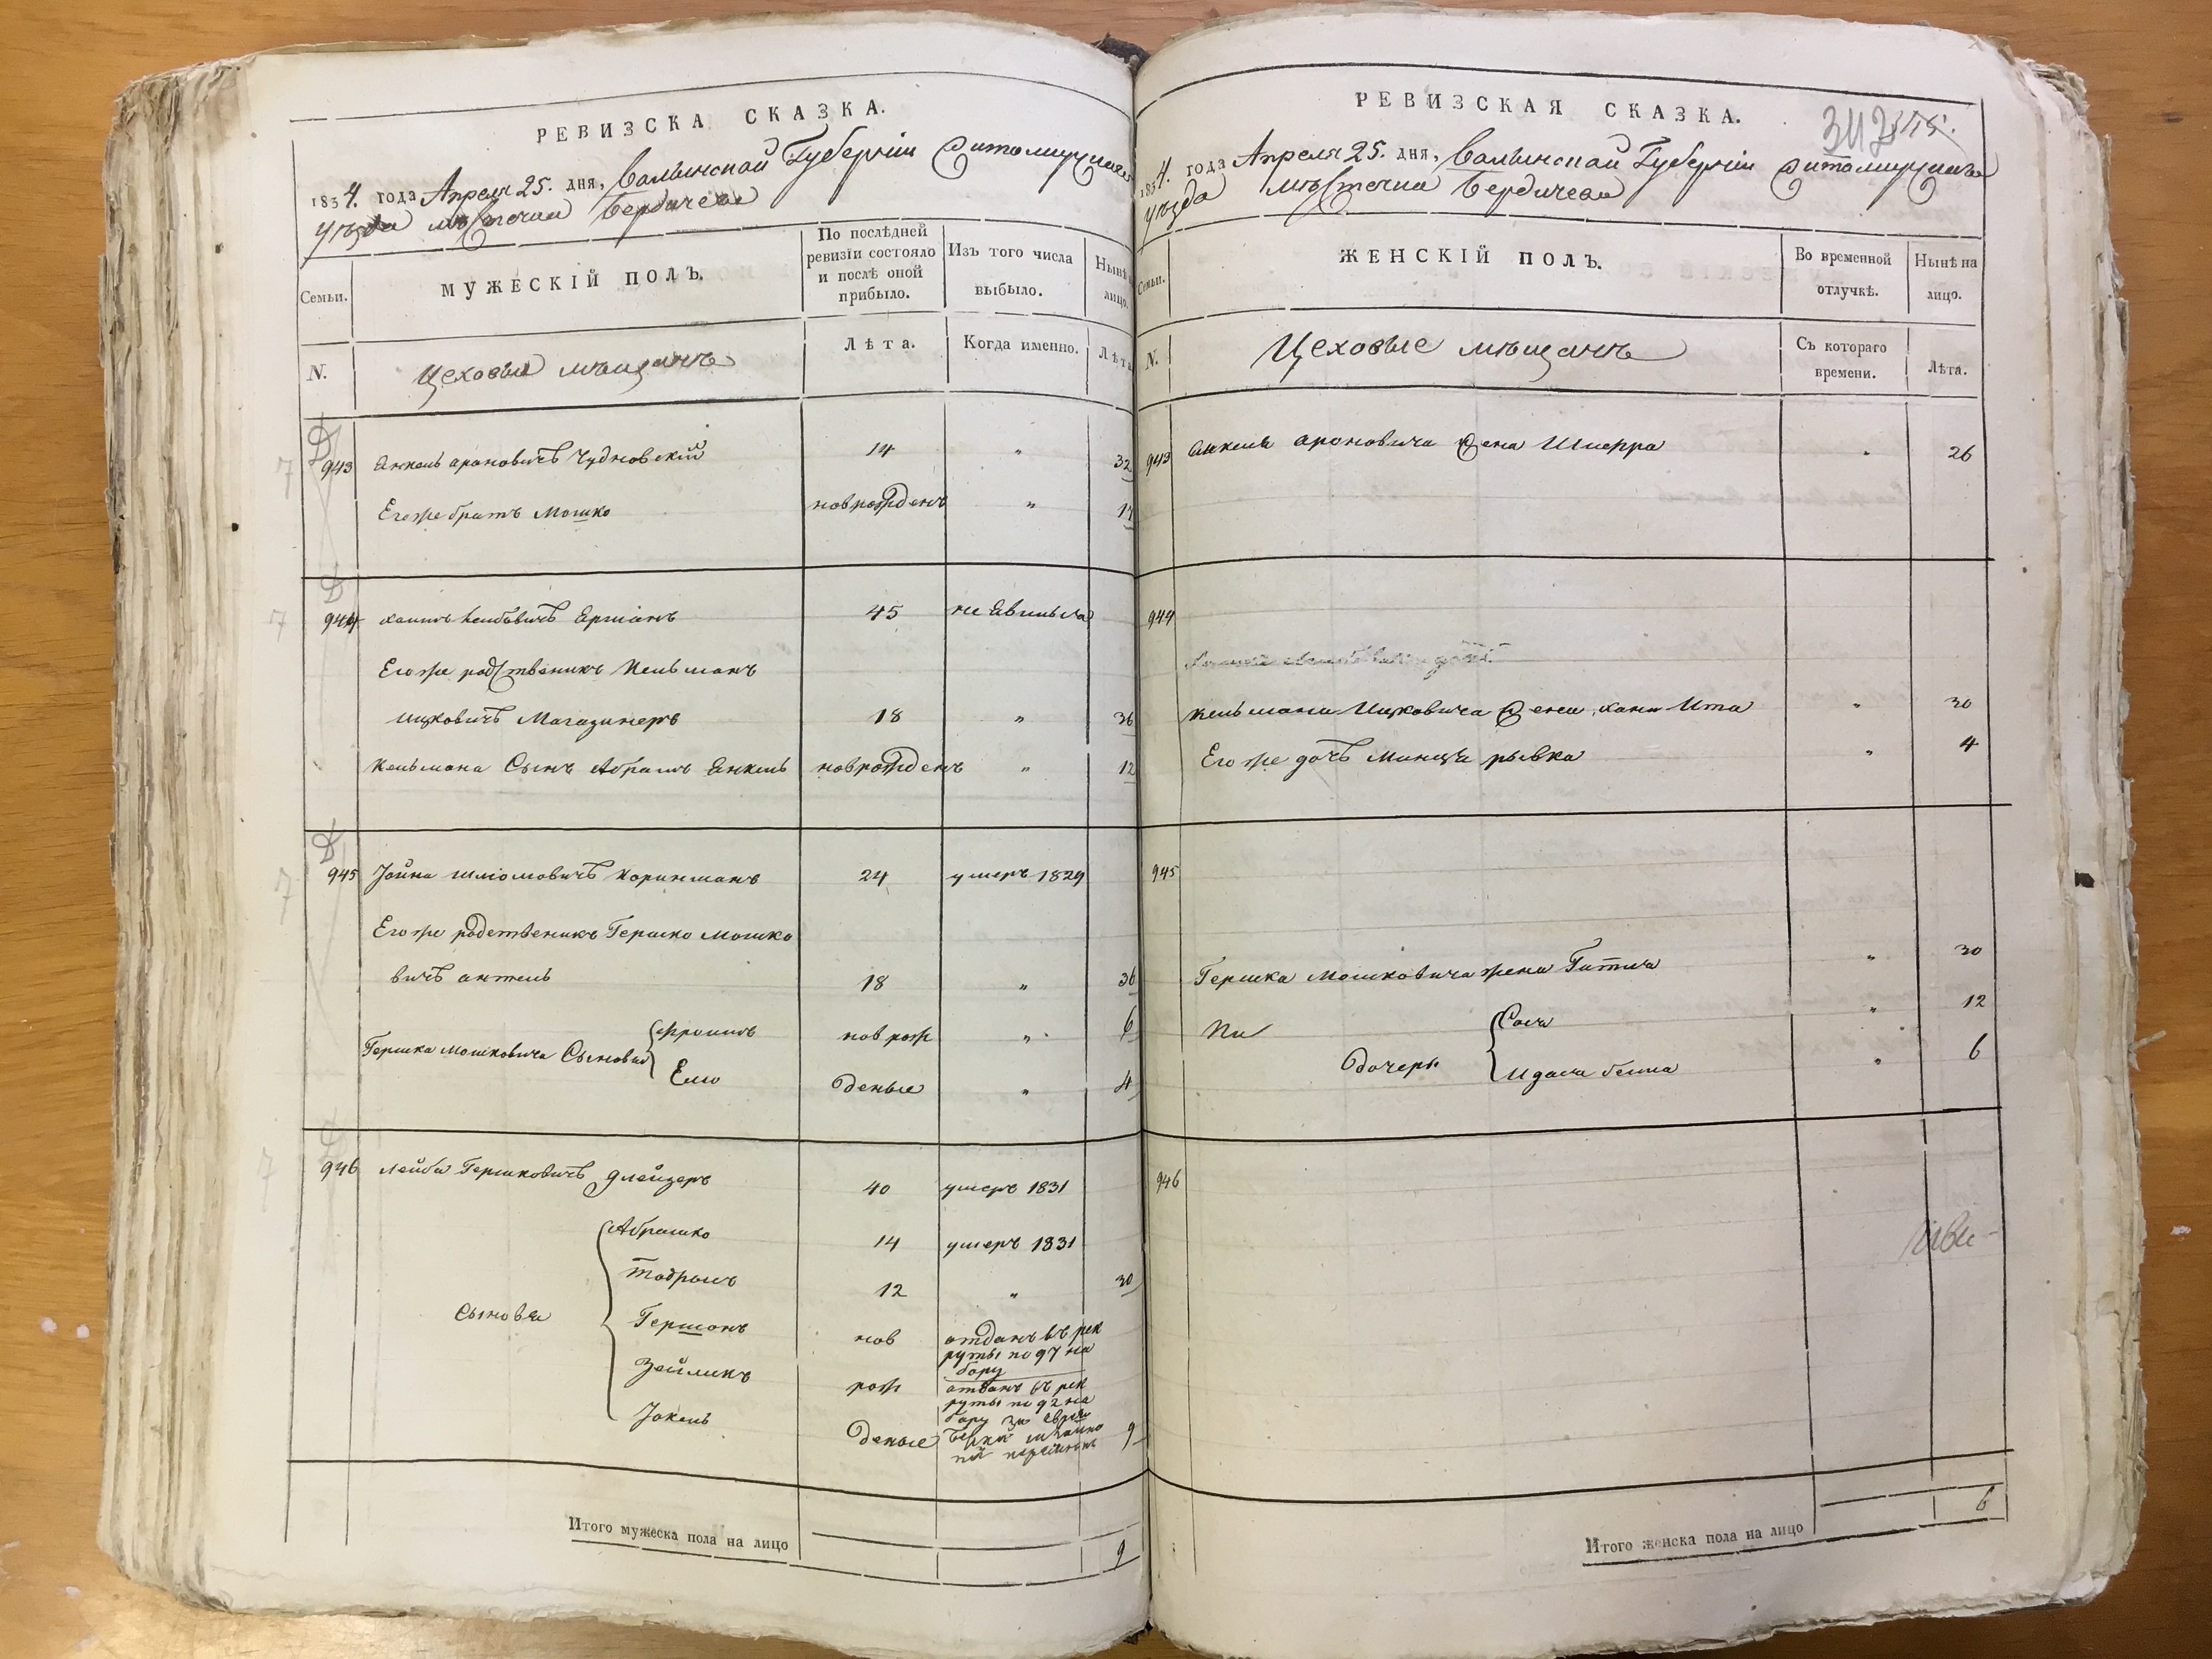 РЕВИЗСКА СКАЗКА.
1834. года Апреля 25. дня, Волынской Губерніи Житомирскаго
уѣзда мѣстечка Бердичева
Семьи.
МУЖЕСКІЙ ПОЛЪ.
По послѣдней ревизіи состояло и послѣ оной прибыло.
Изъ того числа выбыло.
Нынѣ лицо.
N.
Цеховые мѣщанъ
Лѣта.
Когда именно.
Лѣта
943 Янкель ароновичъ Чудновскій 14 " 32
Егоже братъ Мошко новрожденъ " 17
944 хаимъ Лейбовичъ 45 не явился
Егоже родственикъ Кельманъ
ицковичъ Магазинеръ 18 " 36
Кельмана Сынъ Абрамъ Янкель новрожденъ " 12
945 Іойна шліомовичъ Коринманъ 24 умеръ 1829
Егоже родственикъ Гершко мошко
вичъ 18 " 36
Гершка мошковича Сыновья фроимъ новрож " 6
Елю деные " 4
946 лейба Гершковичъ 40 умеръ 1831
Сыновья
Абрашко 14 умеръ 1831
Тодрысъ 12 " 30
Гершонъ нов отданъ въ рек
руты по 97 на
бору
Зейликъ рож отданъ въ рек
руты по 92 на
бору за
Іокель деные 9
Итого мужеска пола на лицо 9
РЕВИЗСКАЯ СКАЗКА.
1834. года Апреля 25. дня, Волынской Губерніи Житомирскаго
уѣзда мѣстечка Бердичева
Семьи.
ЖЕНСКІЙ ПОЛЪ.
Во временной отлучкѣ.
Нынѣ на лицо.
N.
Цеховые мѣщанъ
Съ котораго времени.
Лѣта.
943 Янкеля ароновича жена Шифра " 26
944
Кельмана Ицковича жена хана Ита " 30
Егоже дочь Минця рывка " 4
945
Гершка Мошковича жена Гитля " 30
Ихъ дочери Сося " 12
бейла " 6
946
Итого женска пола на лицо 6